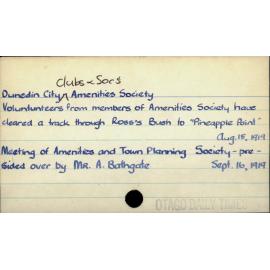 Clubs & Socs
Dunedin City ^ Amenities Society
Voluntunteers from members of Amenities Society have
cleared a track through Ross's Bush to "Pineapple Point"
Aug. 15, 1919
Meeting of Amenities and Town Planning Society - pre-
sided over by Mr. A. Bathgate Sept. 16, 1919
OTAGO DAILY TIMES